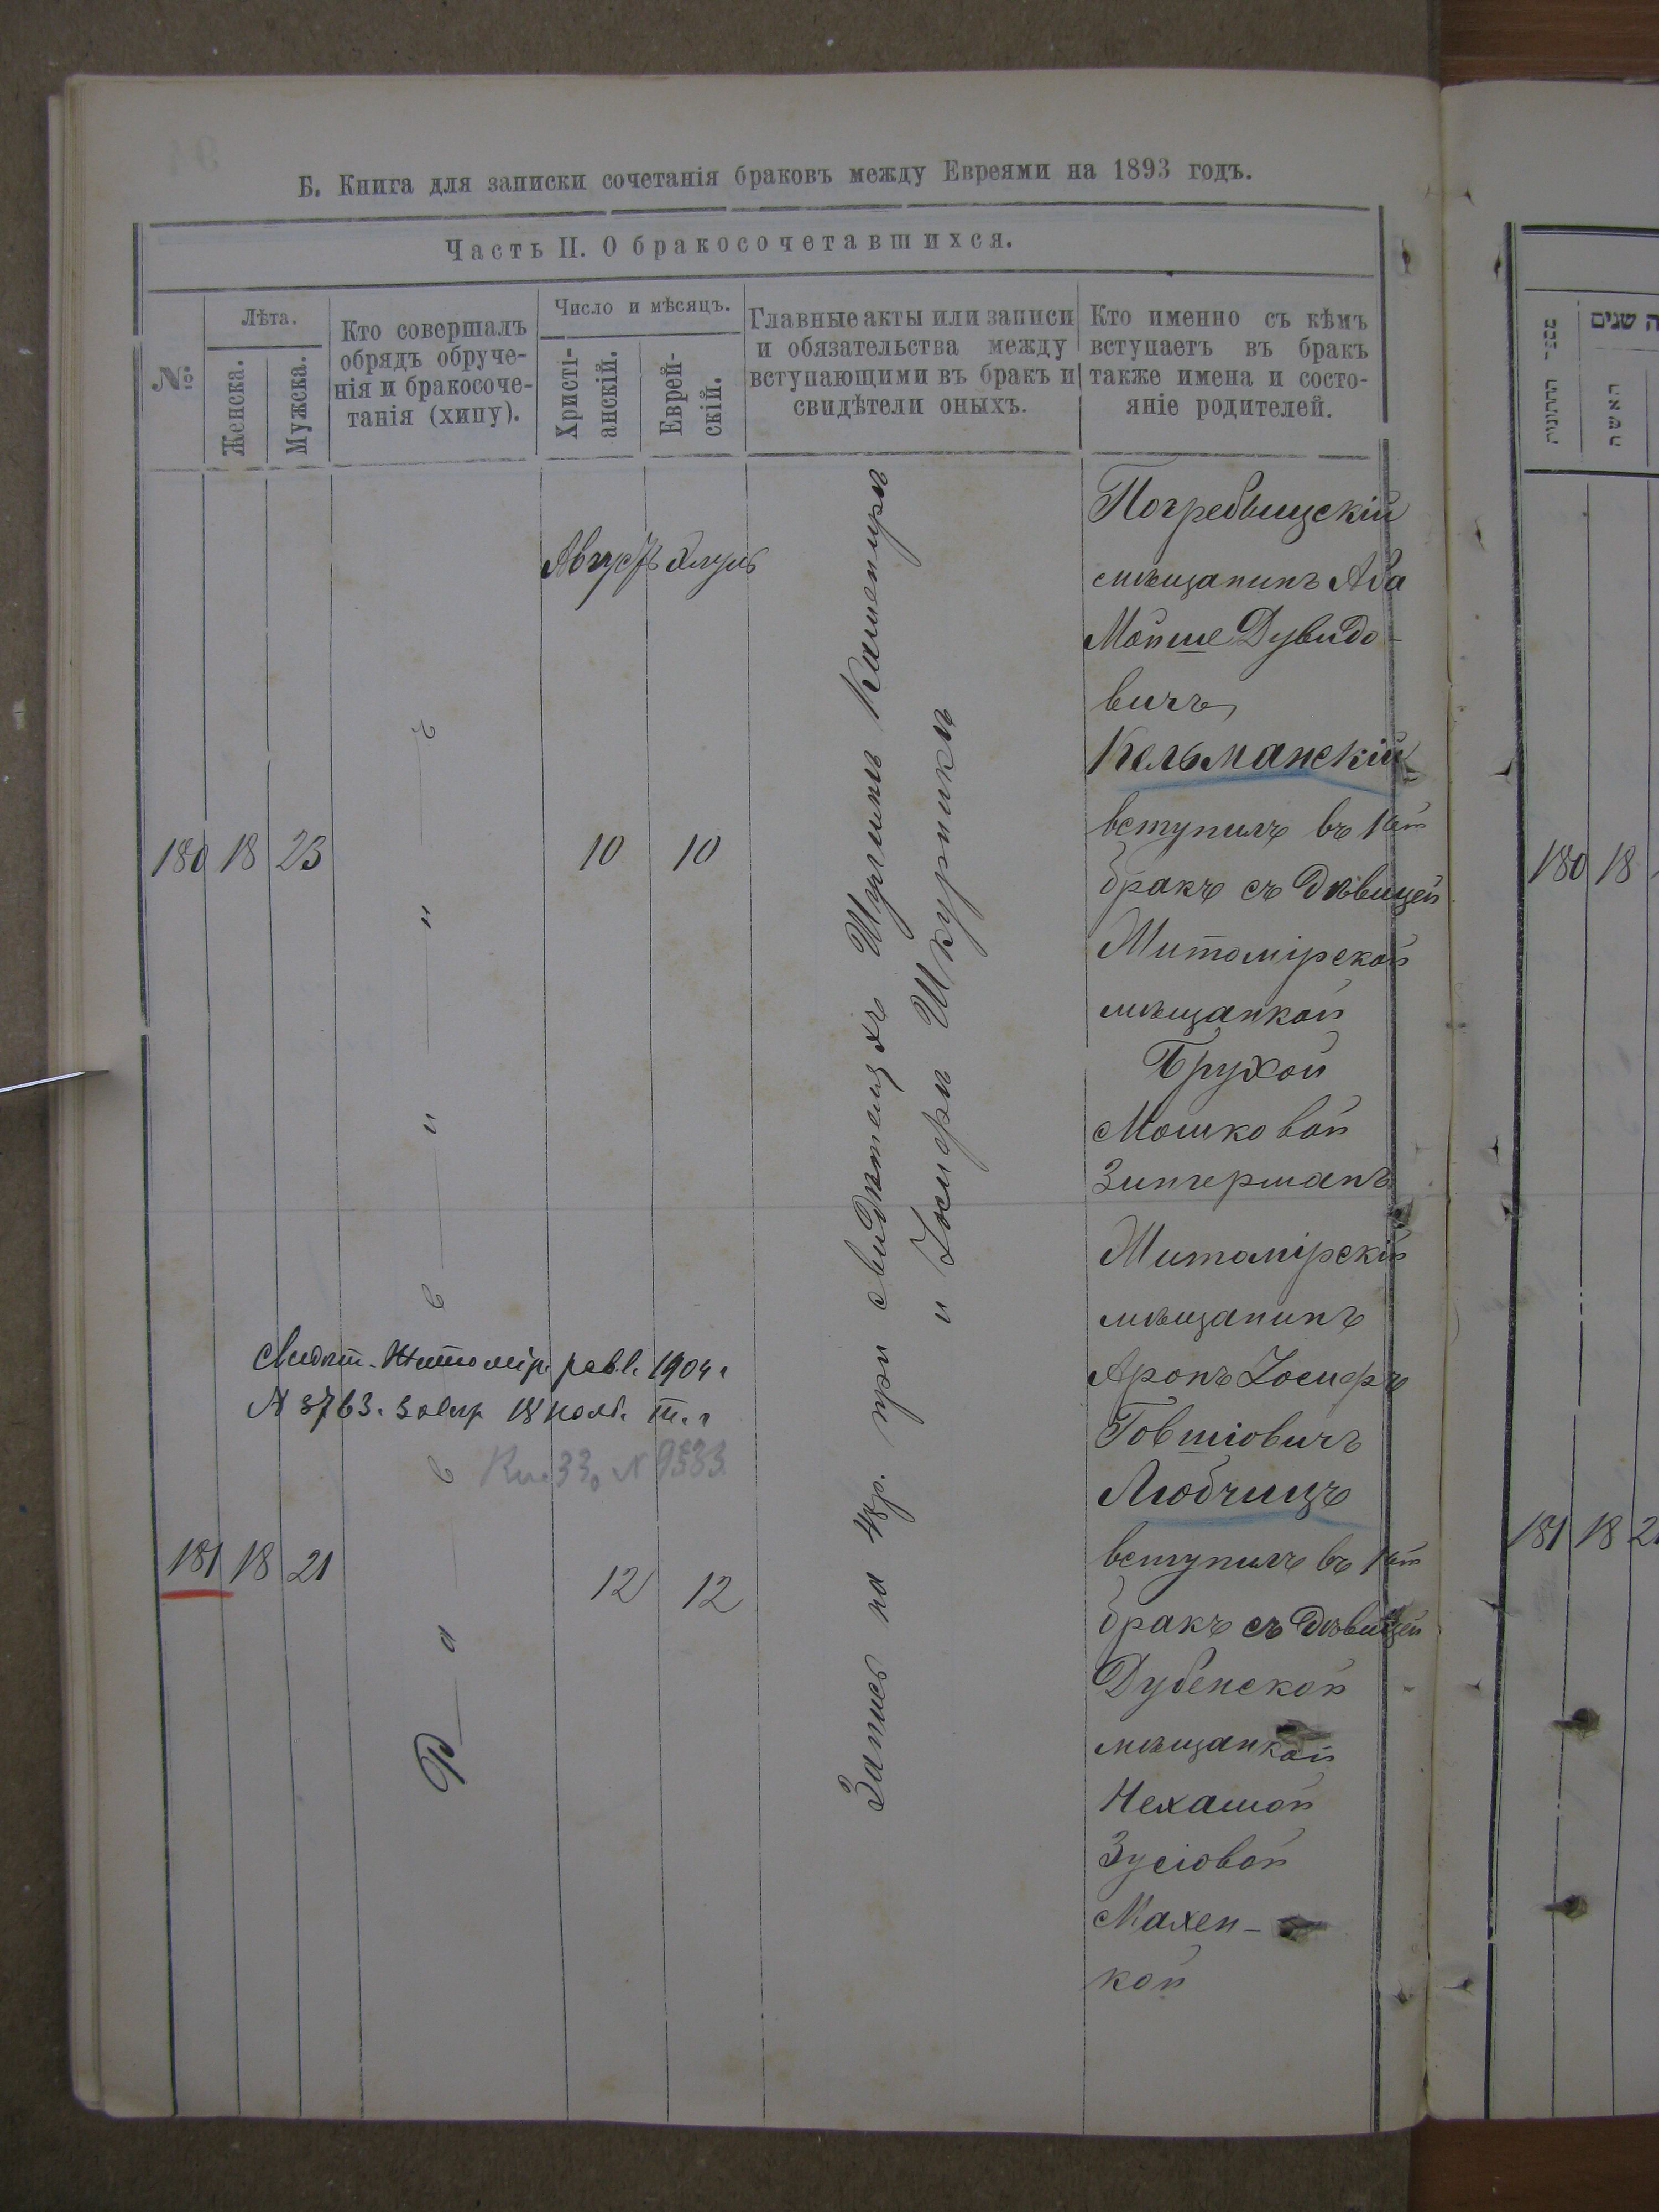 Б. Книга для записки сочетанія браковъ между Евреями на 1893 годъ.
Часть II. О бракосочетавшихся.
№
Лѣта.
Женска.
Мужска.
Кто совершалъ
обрядъ обруче-
нія и бракосоче-
танія (хипу).
Число и мѣсяцъ.
Христі-
анскій.
Еврей-
скій.
Главные акты или записи
и обязательства между
вступающими въ бракъ и
свидѣтели оныхъ.
Кто именно съ кѣмъ
вступаетъ въ бракъ
также имена и состо-
яніе родителей.
Августъ Элулъ
180 18 23
10 10
Р а в и н ъ
Запись на 48р. при свидѣтеляхъ
и Іосифи Шкурники
Погребыщскій
мѣщанинъ Аба
Мойше Дувидо-
вичъ
Кельманскій
вступилъ въ 1ый
бракъ съ дѣвицей
Житомірской
мѣщанкой
Брухой
Мошковой
Зингерманъ
Свидѣт. Житомір. равв. 1904 г
N 3763. завѣр. 18 нояб. т. г
Кн. 33, N 9533
181 18 21
12 12
Житомірскій
мѣщанинъ
Аронъ Іосифъ
Говшіовичъ
Любчицъ
вступилъ въ 1ый
бракъ съ дѣвицей
Дубенской
мѣщанкой
Нехамой
Зусіовой
Махен-
кой
ה שנים
האשה
180 18
181 18 21